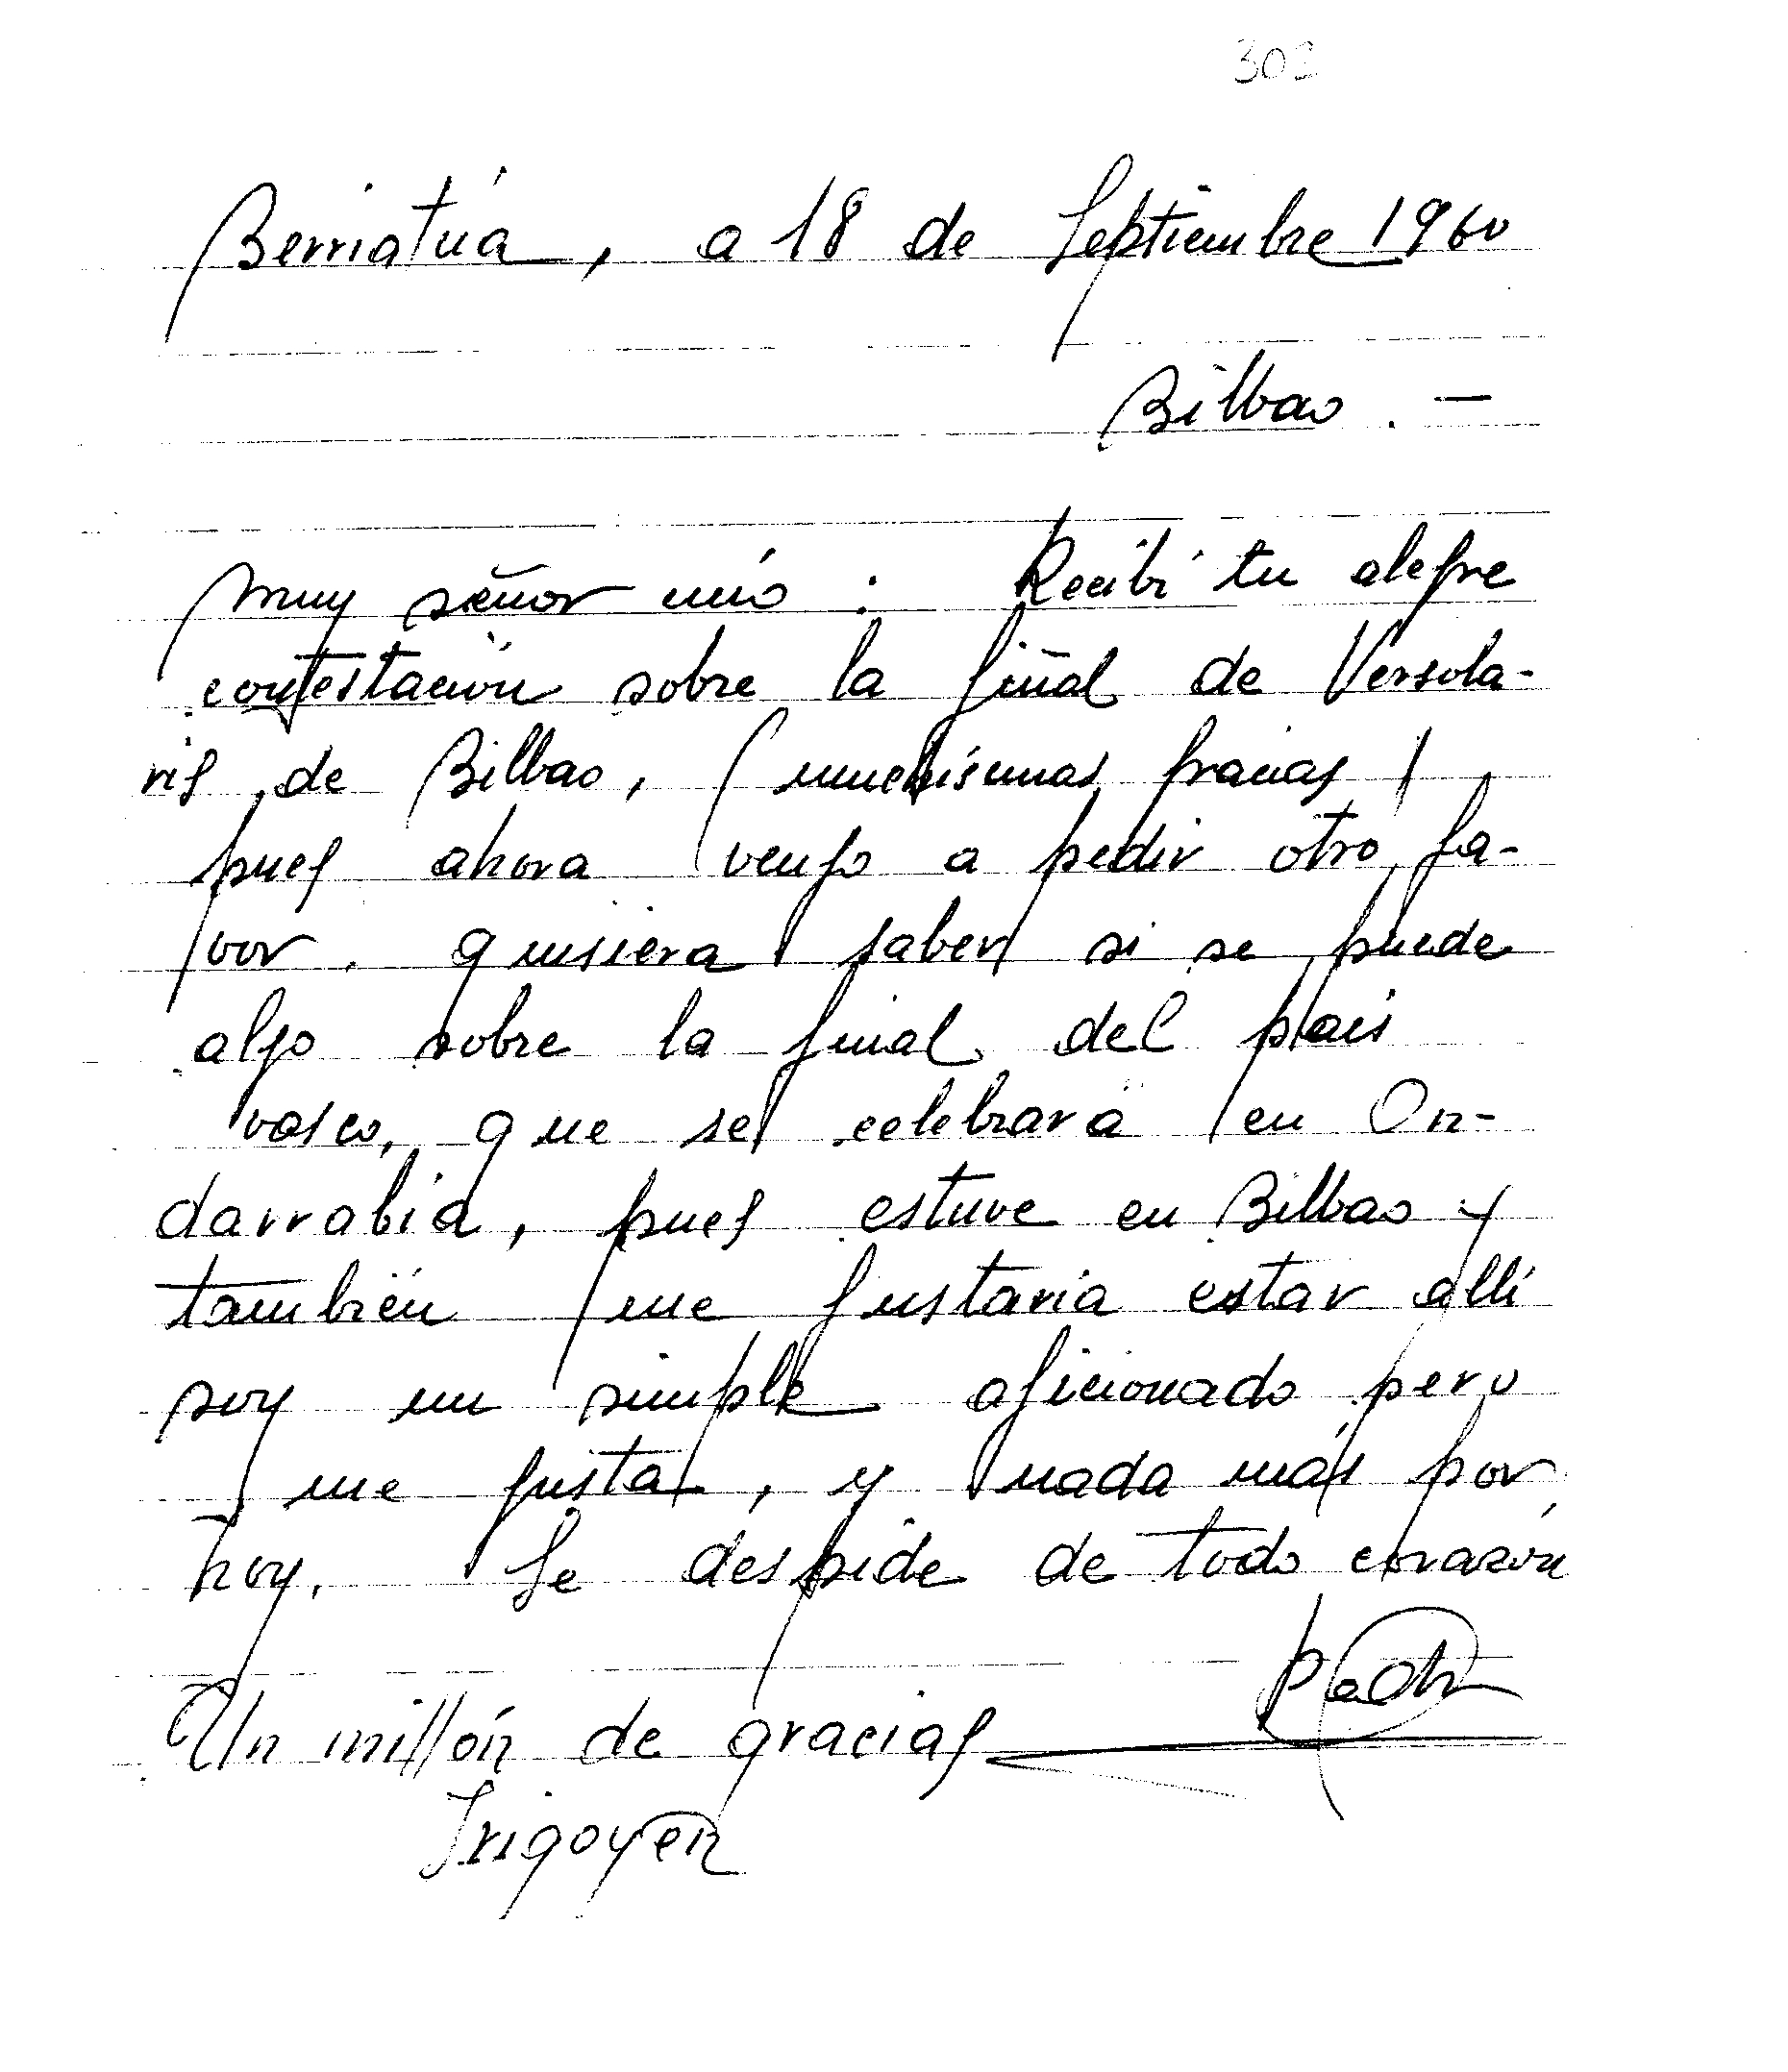 302
Berriatúa, a 18 de Septiembre 1960
Bilbao.-
Muy señor mío: Recibí tu alegre
contestación sobre la fiñal de Versola-
ris de Bilbao, (muchísimas gracias)
pues ahora vengo a pedir otro fa-
vor. quisiera saber si se puede
algo sobre la final del país
vasco, que se celebrará en On-
darrabia, pues estuve en Bilbao y
también me gustaría estar allí
soy un simple aficionado pero
me gusta, y nada más por
hoy. Se despide de todo corazón
Un millón de gracias
Irigoyen